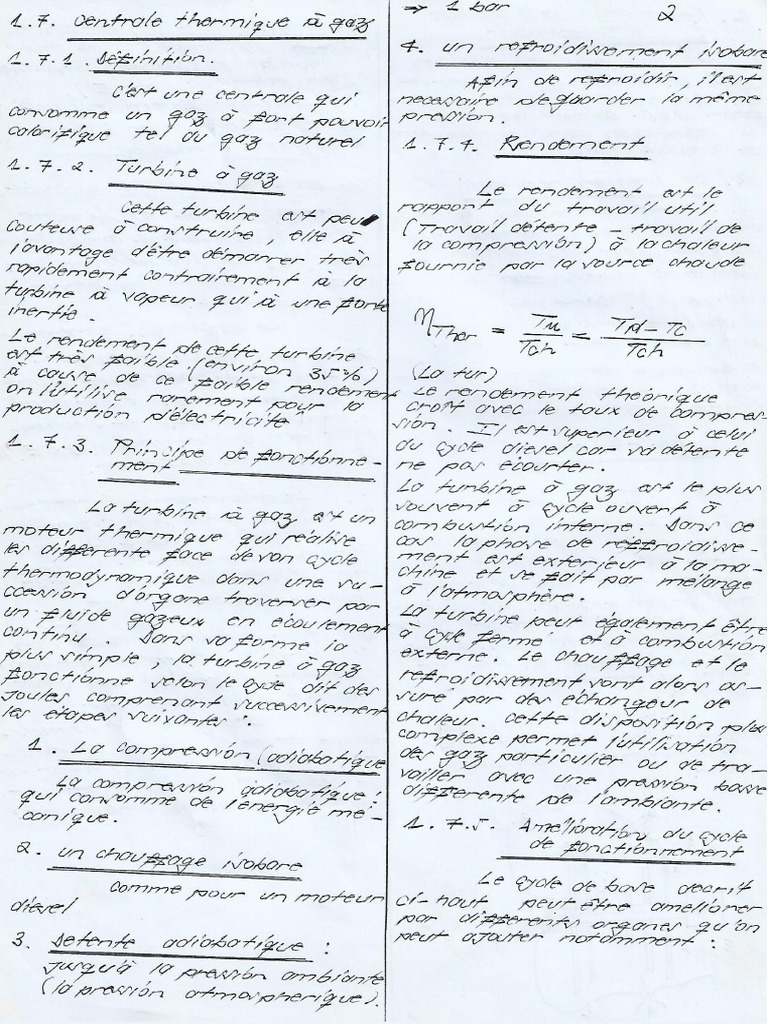 1.7. Centrale thermique à gaz
1.7.1. Définition.
C'est une centrale qui
consomme un gaz à fort pouvoir
calorifique tel du gaz naturel
1.7.2. Turbine à gaz
Cette turbine est peu
couteuse à construire, elle à
l'avantage d'être démarrer très
rapidement contrairement à la
turbine à vapeur qui à une forte
inertie.
Le rendement de cette turbine
est très faible (environ 35%)
à cause de ce faible rendement
on l'utilise rarement pour la
production d'électricité
1.7.3. Principe de fonctionne-
ment
La turbine à gaz est un
moteur thermique qui réalise
les différente face de son cycle
thermodynamique dans une su-
ccession d'organe traverser par
un fluide gazeux en écoulement
continu. Dans sa forme la
plus simple, la turbine à gaz
fonctionne selon le cycle dit des
Joules comprenant successivement
les étapes suivantes :
1. La compression (adiabatique
La compression adiabatique :
qui consomme de l'énergie mé-
canique.
2. un chauffage isobare
comme pour un moteur
diesel
3. Detente adiabatique :
Jusqu'à la pression ambiante
(la pression atmospherique).
⇒ 1 bar
2
4. un refroidissement isobare
Afin de refroidir, il est
necessaire de guarder la même
pression.
1.7.4. Rendement
Le rendement est le
rapport du travail util
(Travail détente - travail de
la compression) à la chaleur
fournie par la source chaude
η Ther = Tu/Tch = Td - Tc/Tch
(La tur)
Le rendement théorique
croît avec le taux de compres-
sion. Il est superieur à celui
du cycle diesel car sa détente
ne pas écourter.
La turbine à gaz est le plus
souvent à cycle ouvent à
combustion interne. Dans ce
cas la phase de reffroidisse-
ment est exterieur à la ma-
chine et se fait par mélange
à l'atmosphère.
La turbine peut également être
à cycle fermé et à combustion
externe. Le chauffage et le
refroidissement sont alors as-
suré par des échangeur de
chaleur. Cette disposition plus
complexe permet l'utilisation
des gaz particulier ou de tra-
vailler avec une pression basse
différente de l'ambiante.
1.7.5. Amélioration du cycle
de fonctionnement
Le cycle de base decrit
ci-haut peut être ameliorer
par differents organes qu'on
peut ajouter notamment :